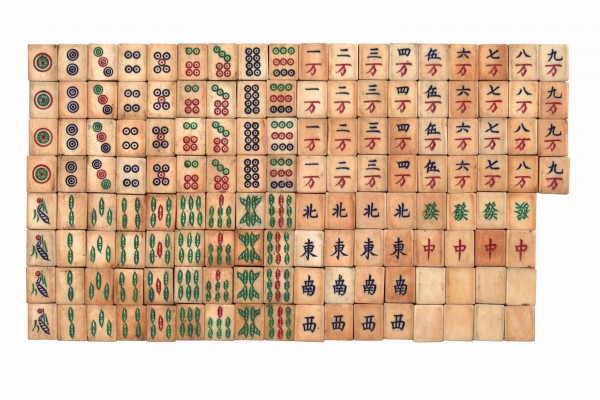 一 二 三 四 伍 六 七 八 九
万 万 万 万 万 万 万 万 万
一 二 三 四 伍 六 七 八 九
万 万 万 万 万 万 万 万 万
一 二 三 四 伍 六 七 八 九
万 万 万 万 万 万 万 万 万
一 二 三 四 伍 六 七 八 九
万 万 万 万 万 万 万 万 万
北 北 北 北 發 發 發 發
東 東 東 東 中 中 中 中
南 南 南 南
西 西 西 西